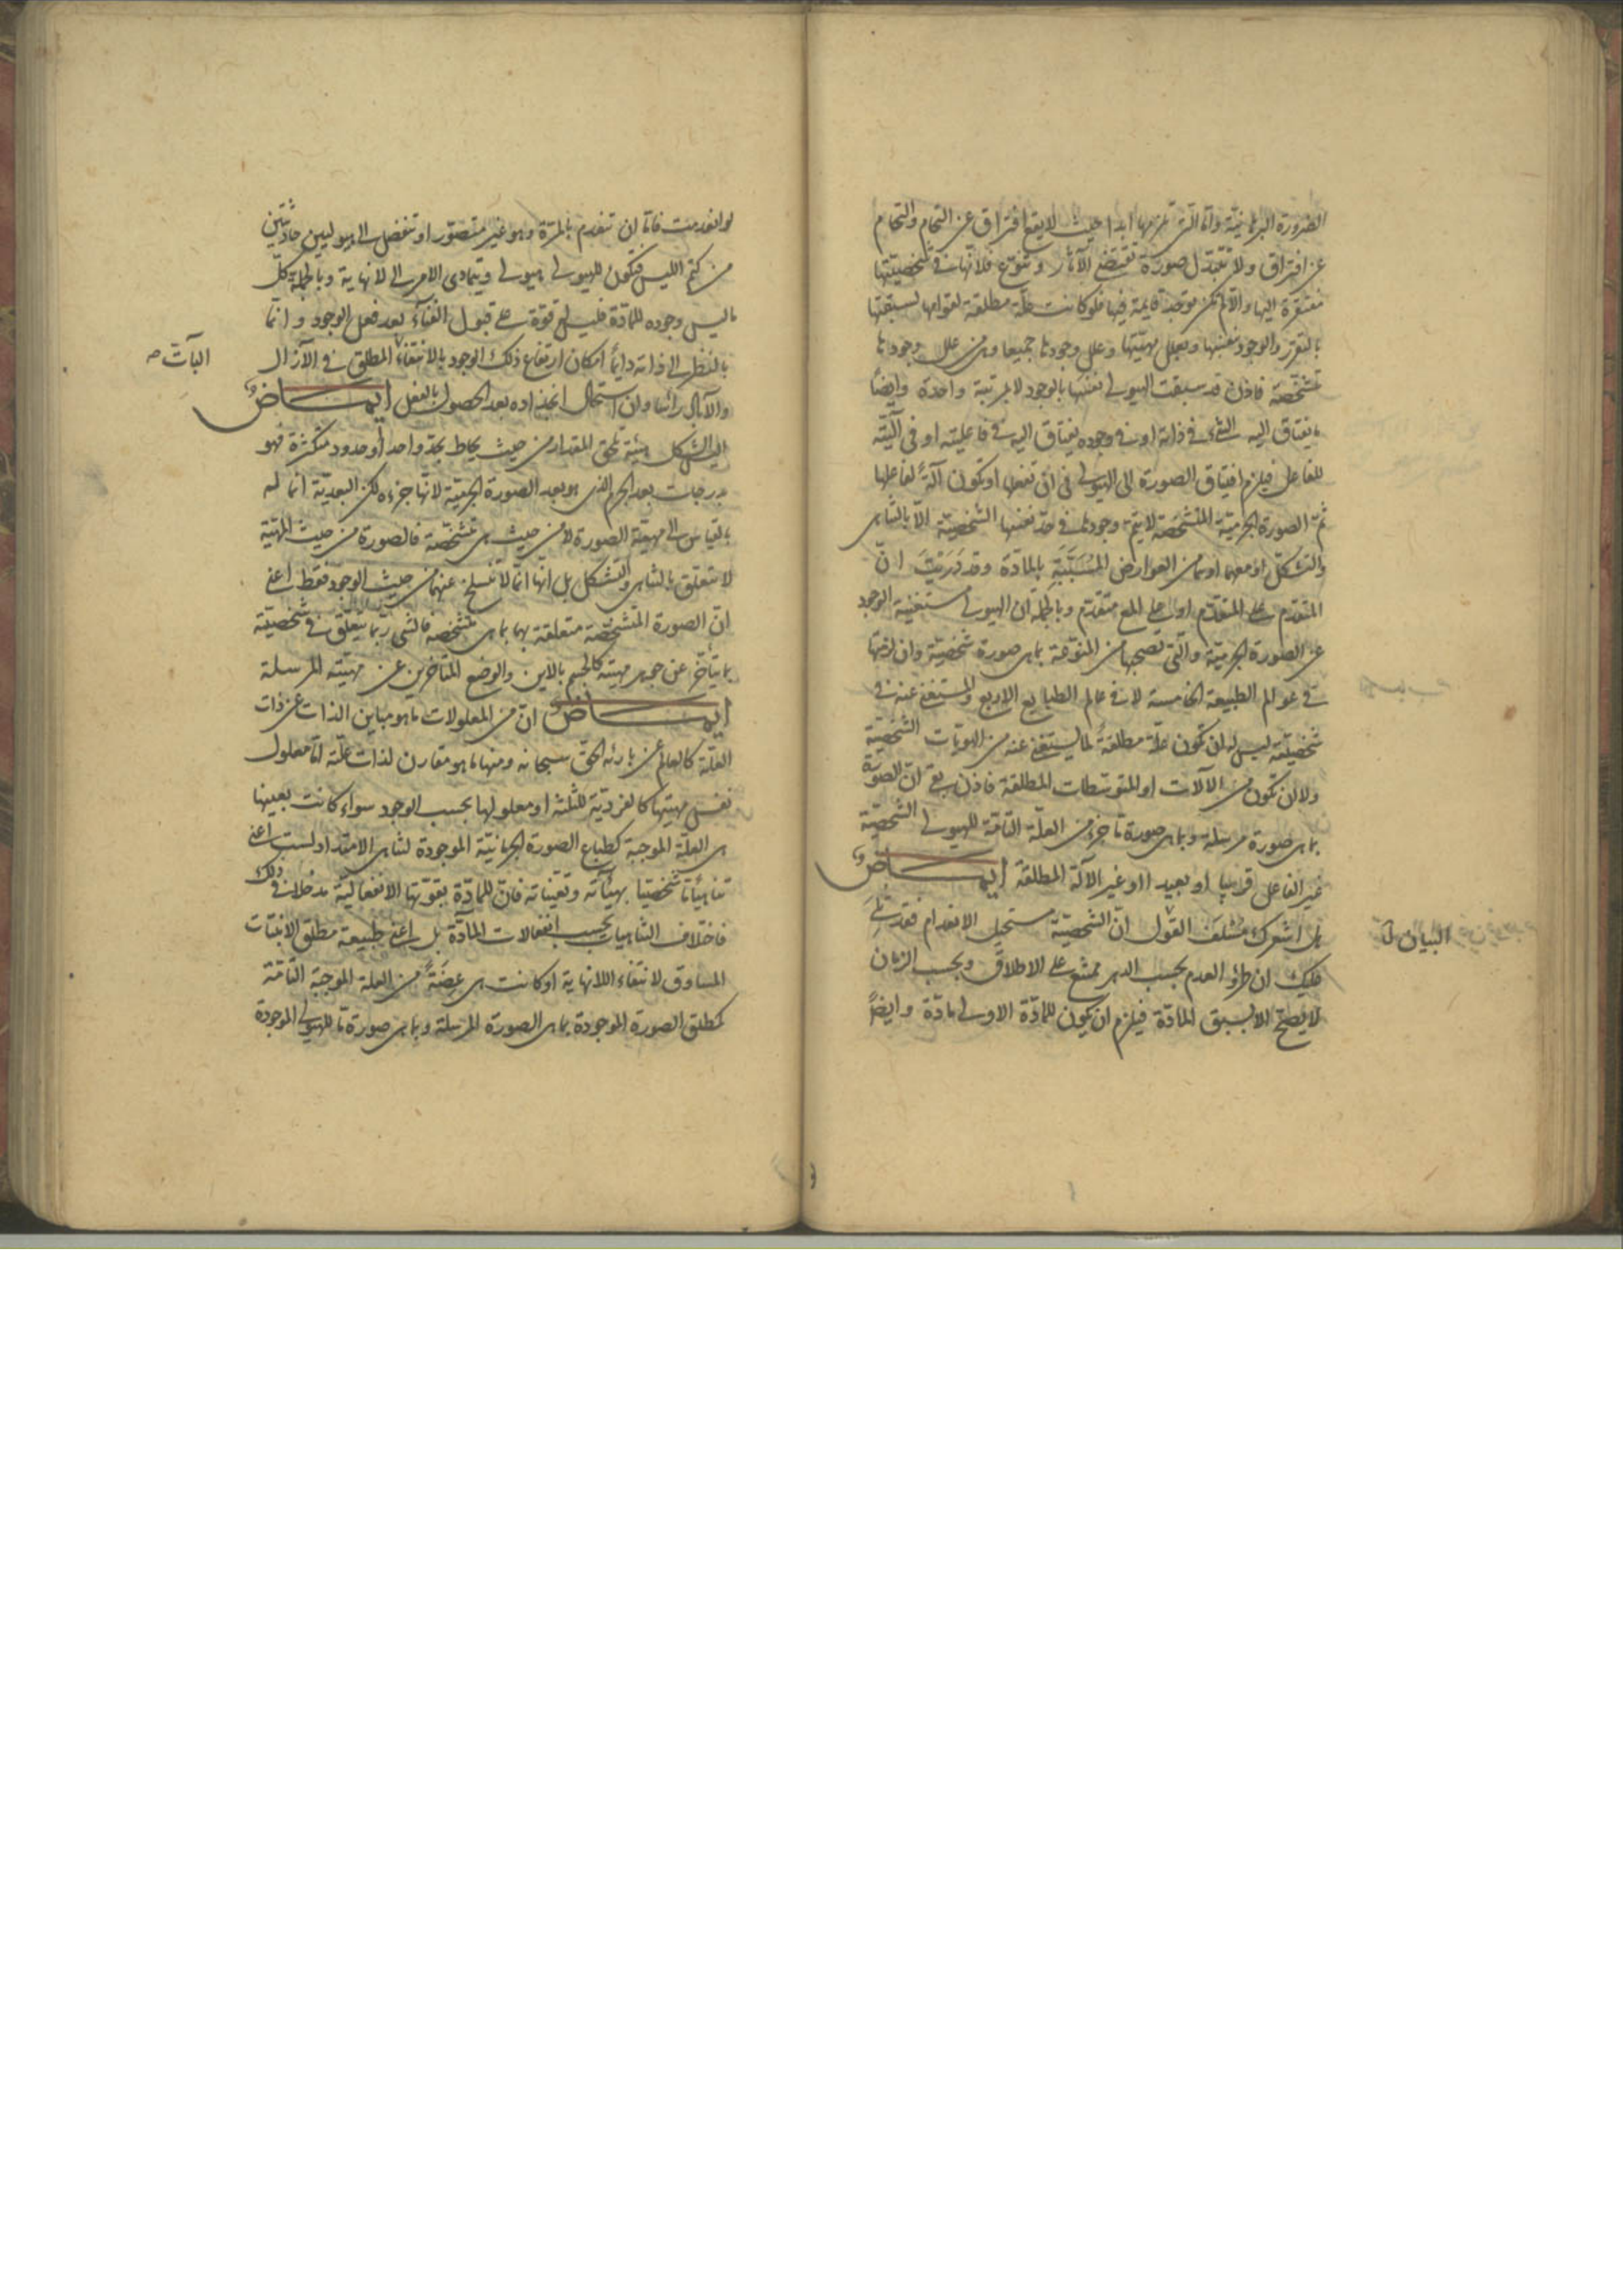 الضرورة البرهانية واما التى تلزمها ابدا حيث لا يقع افتراق عن التحام والتحام
عن افتراق ولا تتبدل صورة تقتضى الآثار وتنوع فلانها فى شخصيتها
مفتقرة اليها والا لم تكن موجدة قايمة فيها فلو كانت علة مطلقة لقوامها لسبقتها
بالتقرر والوجود بنفسها وبعلل مهيتها وعلل وجودها جميعا ومن علل وجودها
متشخصة فاذن قد سبقت الهيولى نفسها بالوجود لا بمرتبة واحدة وايضا
ما يفتاق اليه الشئ فى ذاته او فى وجوده يفتاق اليه فى فاعليته او فى آليته
للفاعل فيلزم افتياق الصورة الى الهيولى فى ان تفعلها او تكون آلة لفاعلها
ثم الصورة الجرمية المتشخصة لا يتم وجودها فى حد نفسها الشخصية الا بالتناهى
والتشكل او معهما وهما من العوارض المسببة بالمادة وقد دريت ان
المتقدم على المتقدم او على المع متقدم وبالجملة ان الهيولى مستغنية الوجود
عن الصورة الجرمية والتى تصحبها من المنوعة بما هى صورة شخصية وان لزمتها
فى عوالم الطبيعة الخامسة لا فى عالم الطبايع الاربع والمستغنى عنه فى
شخصيته ليس له ان تكون علة مطلقة لما يستغنى عنه من الهويات الشخصية
ولا ان تكون من الآلات او المتوسطات المطلقة فاذن بقى ان الصورة
بما هى صورة مرسلة وبما هى صورة ما جزء من العلة التامة للهيولى الشخصية
غير الفاعل قريبا او بعيدا او غير الآلة المطلقة ايمـــاض
هل اشعرك مسلف القول ان الشخصية مستحيل الانعدام فقد تلى
عليك ان طروء العدم بحسب الدهر ممتنع على الاطلاق وبحسب الزمان
لا يصح الا بسبق المادة فيلزم ان يكون للمادة الاولى مادة وايضا
البيان
لو انعدمت فاما ان تنعدم بالمرة وهو غير متصور او تنفصل الى هيوليين حادثتين
من كتم الليس فتكون للهيولى هيولى ويتمادى الامر الى لا نهاية وبالجملة كل
ما ليس وجوده للمادة فليس له قوة على قبول الفناء بعد فعل الوجود وانما
بالنظر الى ذاته دايما امكان ارتفاع ذلك الوجود بالانتفاء المطلق فى الآزال
البات صح
والآباد رأسا وان استحال انجذاذه بعد الحصول بالفعل ايمـــاض
اليس الشكل هيئة تلحق المقدار من حيث يحاط بحد واحد او حدود متكثرة فهو
بدرجات بعد الجرم الذى هو بعد الصورة الجسمية لانها جزءه لكن البعدية انما له
بالقياس الى مهية الصورة لا من حيث هى متشخصة فالصورة من حيث المهية
لا تتعلق بالتناهى والتشكل بل انها انما لا تنسلخ عنهما من حيث الوجود فقط اعنى
ان الصورة المتشخصة متعلقة بهما بما هى متشخصة فالشئ ربما يتعلق فى شخصيته
بما يتأخر عن جوهر مهيته كالجسم بالاين والوضع المتاخرين عن مهيته المرسلة
ايمـــاض ان من المعلولات ما هو مباين الذات عن ذات
العلة كالعالم عن بارئه الحق سبحانه ومنها ما هو مقارن لذات علته اما معلول
نفس مهيتها كالفردية للثلثة او معلولها بحسب الوجود سواء كانت بعينها
هى العلة الموجبة كطباع الصورة الجرمانية الموجودة لتناهى الامتداد لست اعنى
تناهيا ما شخصيا بهيئاته وتعيناته فان للمادة بقوتها الانفعالية مدخلا فى ذلك
فاختلاف التناهيات بحسب انفعالات المادة بل اعنى طبيعة مطلق الانبتات
المساوق لانتفاء اللانهاية او كانت هى عضة من العلة الموجبة التامة
كمطلق الصورة الموجودة بما هى الصورة المرسلة وبما هى صورة ما للهيولى الموجودة